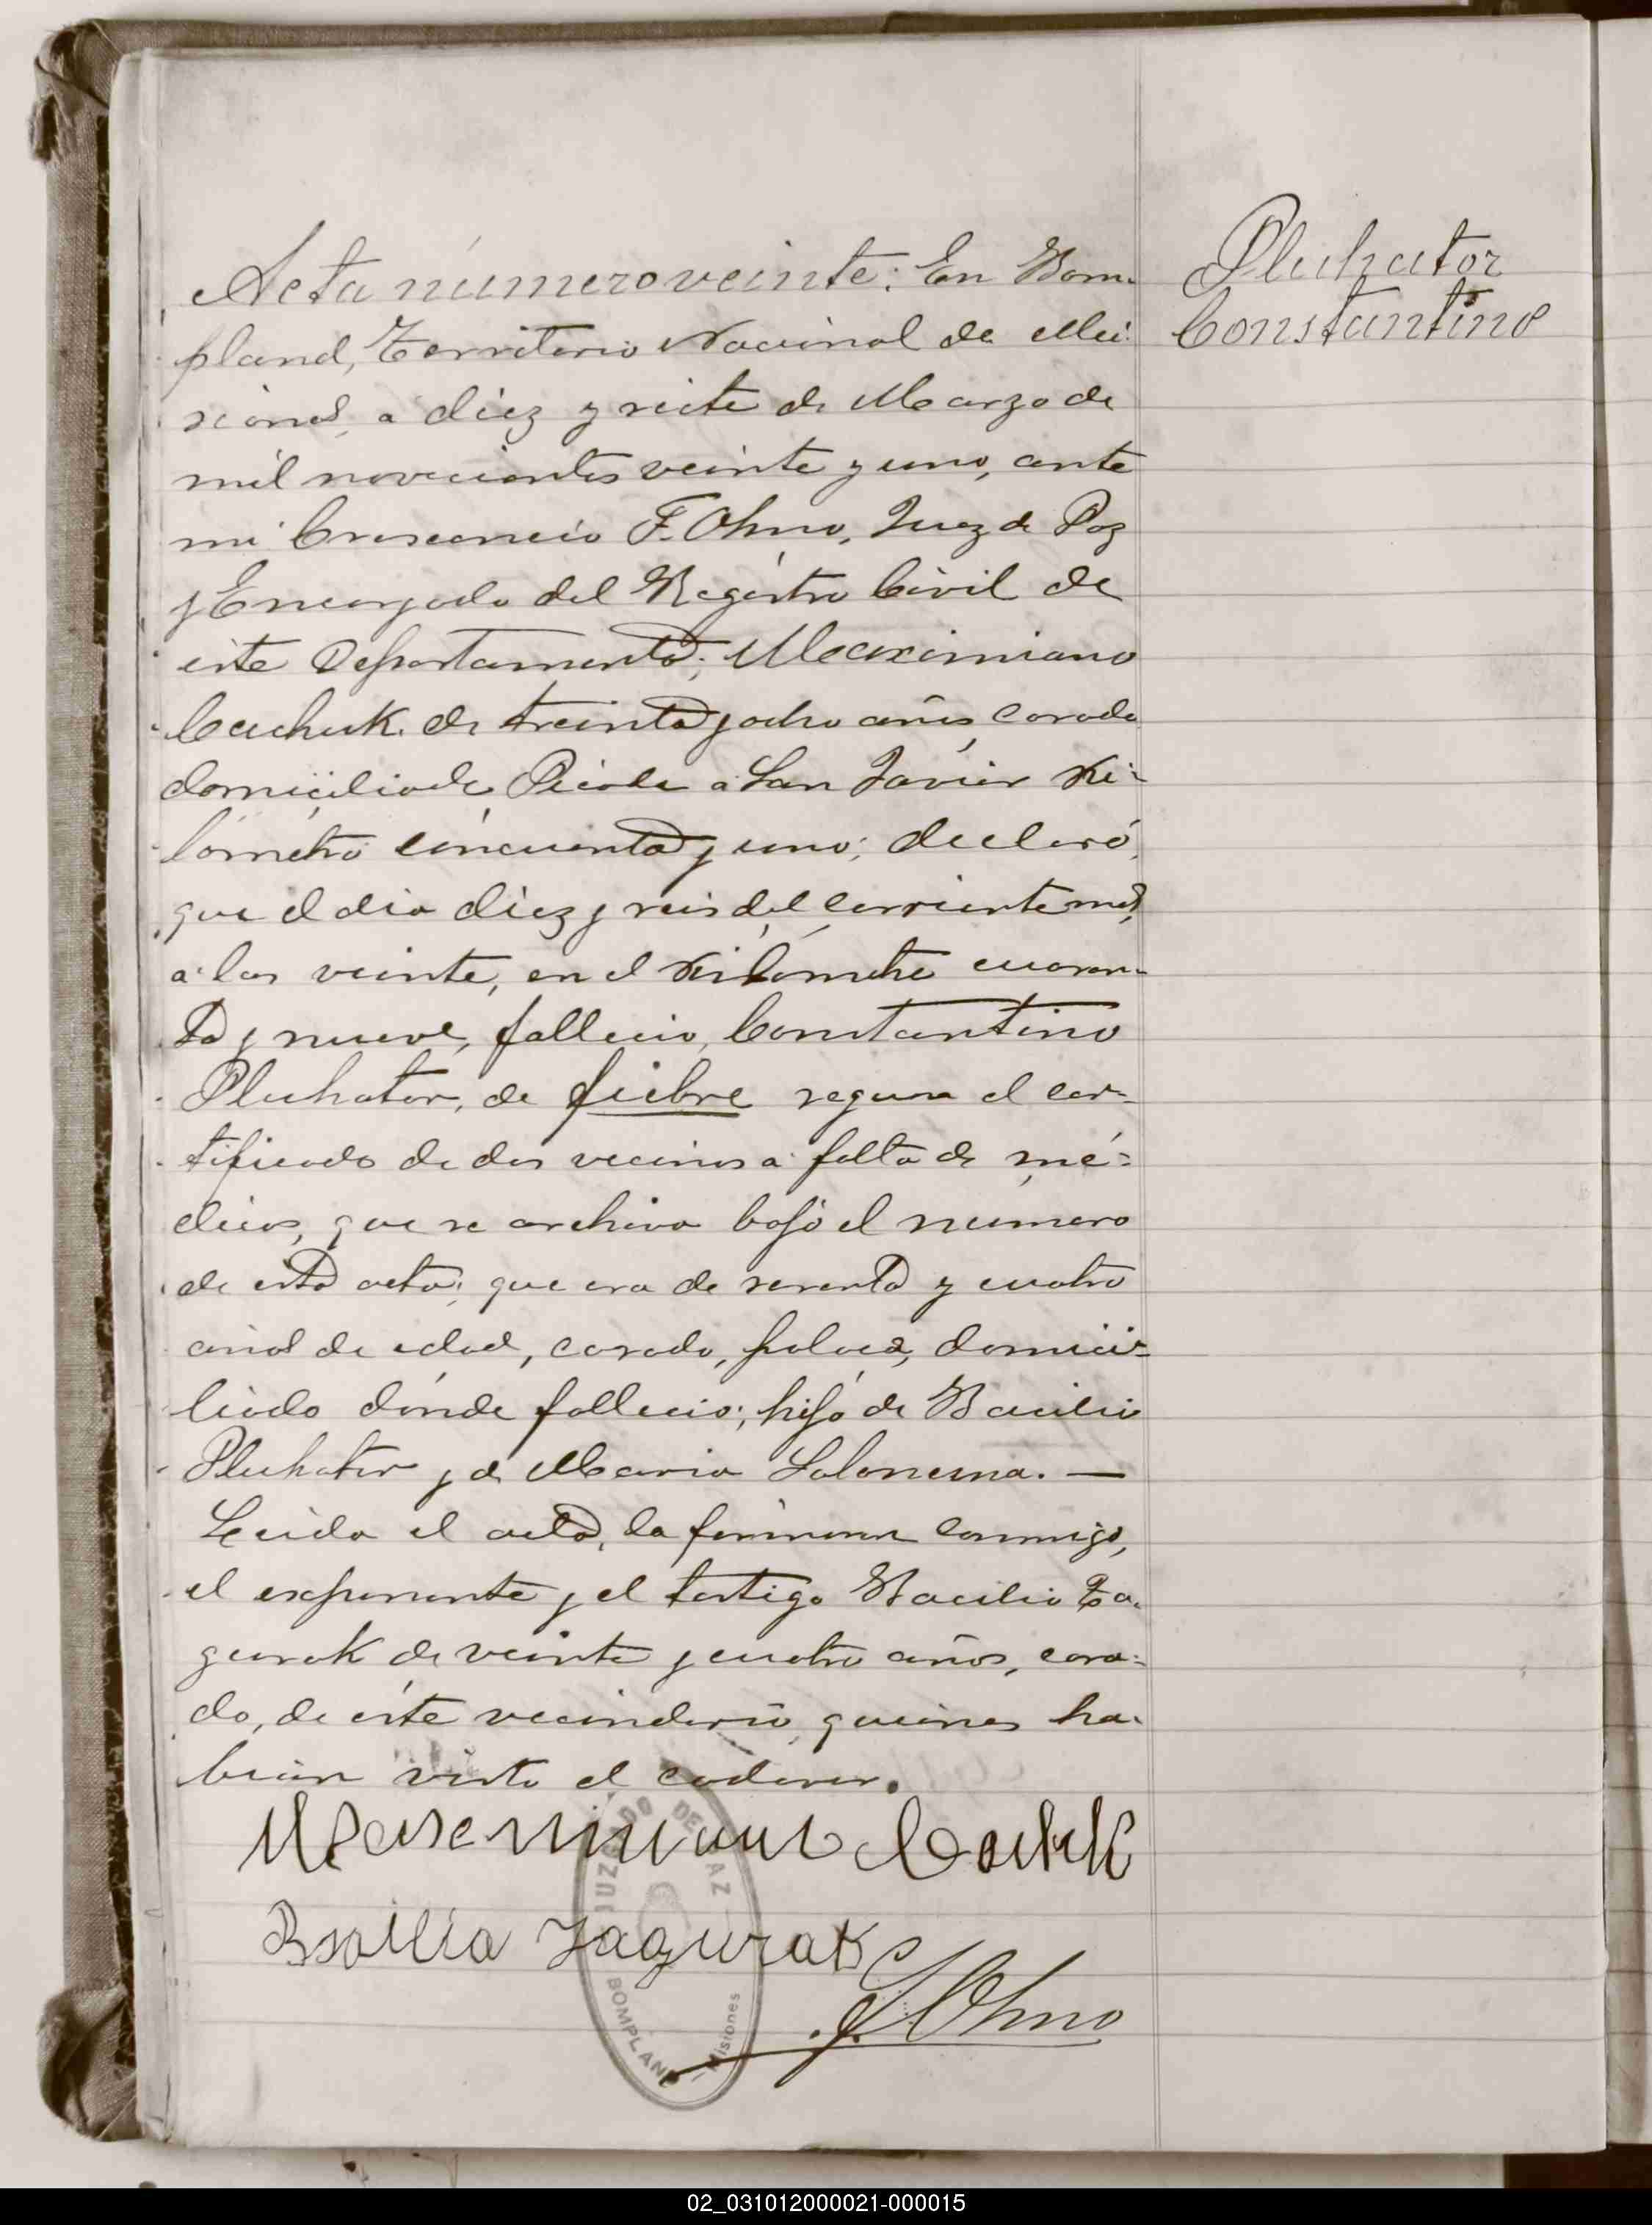 Acta número veinte: En Bom-
pland, Territorio Nacional de Mi-
siones, a diez y siete de Marzo de
mil novecientos veinte y uno, ante
mi Crescencio F. Ohno, Juez de Paz
y Encargado del Registro Civil de
este Departamento; Maximiano
Cachuk de treinta y ocho años, casado
domiciliado Picada a San Javier Ki-
lómetro cincuenta y uno; declaró,
que el dia diez y seis del corriente mes,
a las veinte, en el Kilómetro cuaren-
ta y nueve, falleció, Constantino
Pluhator, de fiebre segun el cer-
tificado de dos vecinos a falta de mé-
dicos, que se archiva bajo el número
de esta acta; que era de y cuatro
años de edad, casado, polaco, domici-
liado dónde falleció; hijo de Bacilio
Pluhator y de Maria Solonema. —
Leida el acta, la firman conmigo,
el exponente y el testigo Bacilio Za-
gurak de veinte y cuatro años, casa-
do, de éste vecindario, quienes ha-
bian visto el cadaver.
Pluhator
Constantino
Bsailia Zagurak
F Ohno
JUZGADO DE PAZ
BOMPLAND Misiones
02_031012000021-000015